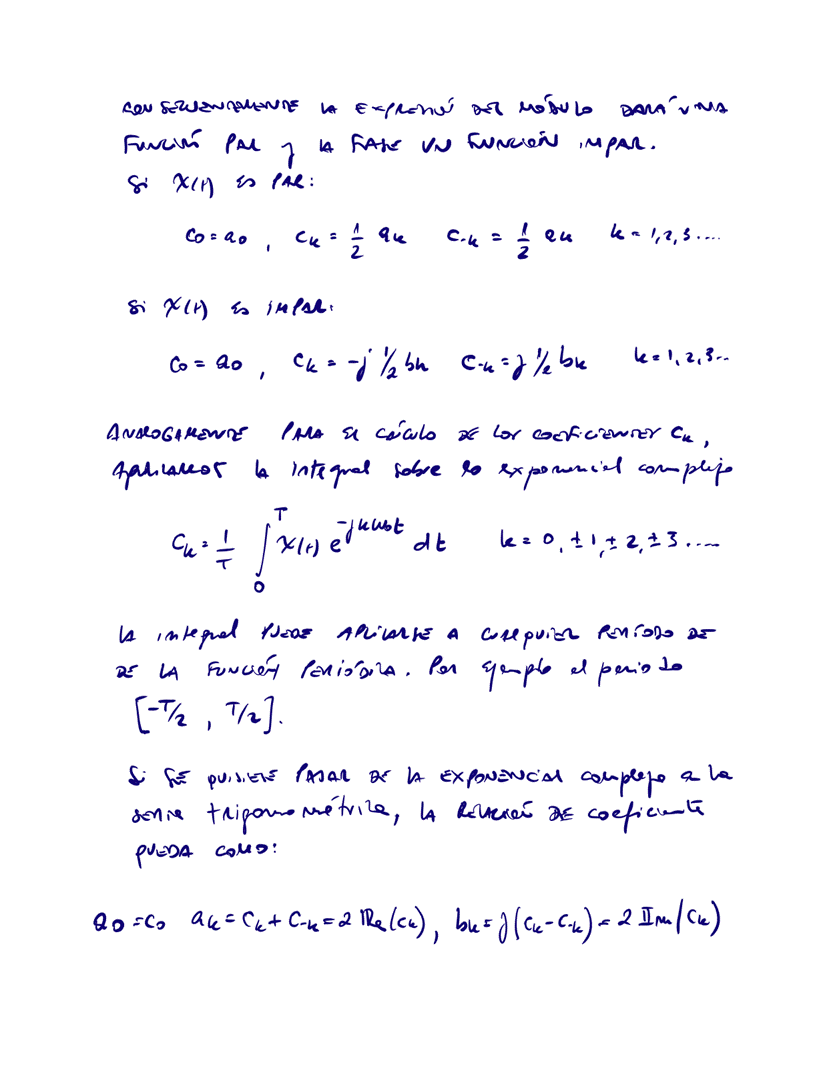 CONSECUENTEMENTE LA EXPRESIÓN DEL MÓDULO DARÁ UNA
FUNCIÓN PAR y LA FASE UN FUNCIÓN IMPAR.
Si X(t) ES PAR:
C0 = a0 , Ck = 1/2 ak C-k = 1/2 ak k = 1,2,3....
Si X(t) ES IMPAR:
C0 = a0 , Ck = -j 1/2 bk C-k = j 1/2 bk k = 1, 2, 3..
ANALOGAMENTE PARA EL CÁLCULO DE LOS COEFICIENTES Ck,
APLICAMOS LA integral sobre la exponencial compleja
Ck = 1/T ∫₀ᵀ X(t) e^(-jkω0t) dt k = 0, ±1, ±2, ±3.....
LA integral PUEDE APLICARSE A CUALQUIER PERÍODO DE
DE LA FUNCIÓN PERIÓDICA. Por ejemplo el periodo
[-T/2 , T/2].
Si SE QUISIERE PASAR DE LA EXPONENCIAL compleja a la
serie trigonométrica, LA RELACIÓN DE coeficiente
QUEDA COMO:
a0 = C0 ak = Ck + C-k = 2 Re(Ck), bk = j(Ck - C-k) = 2 Im(Ck)